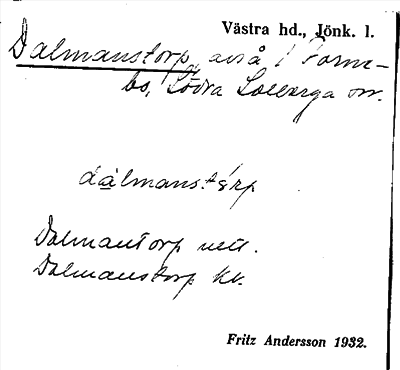 Västra hd., Jönk. l.
Dalmanstorp, avs å 1 Torne-
bo, Södra Solberga sn.
dàlmans.tórp
Dalmantorp uett.
Dalmanstorp kv.
Fritz Andersson 1932.